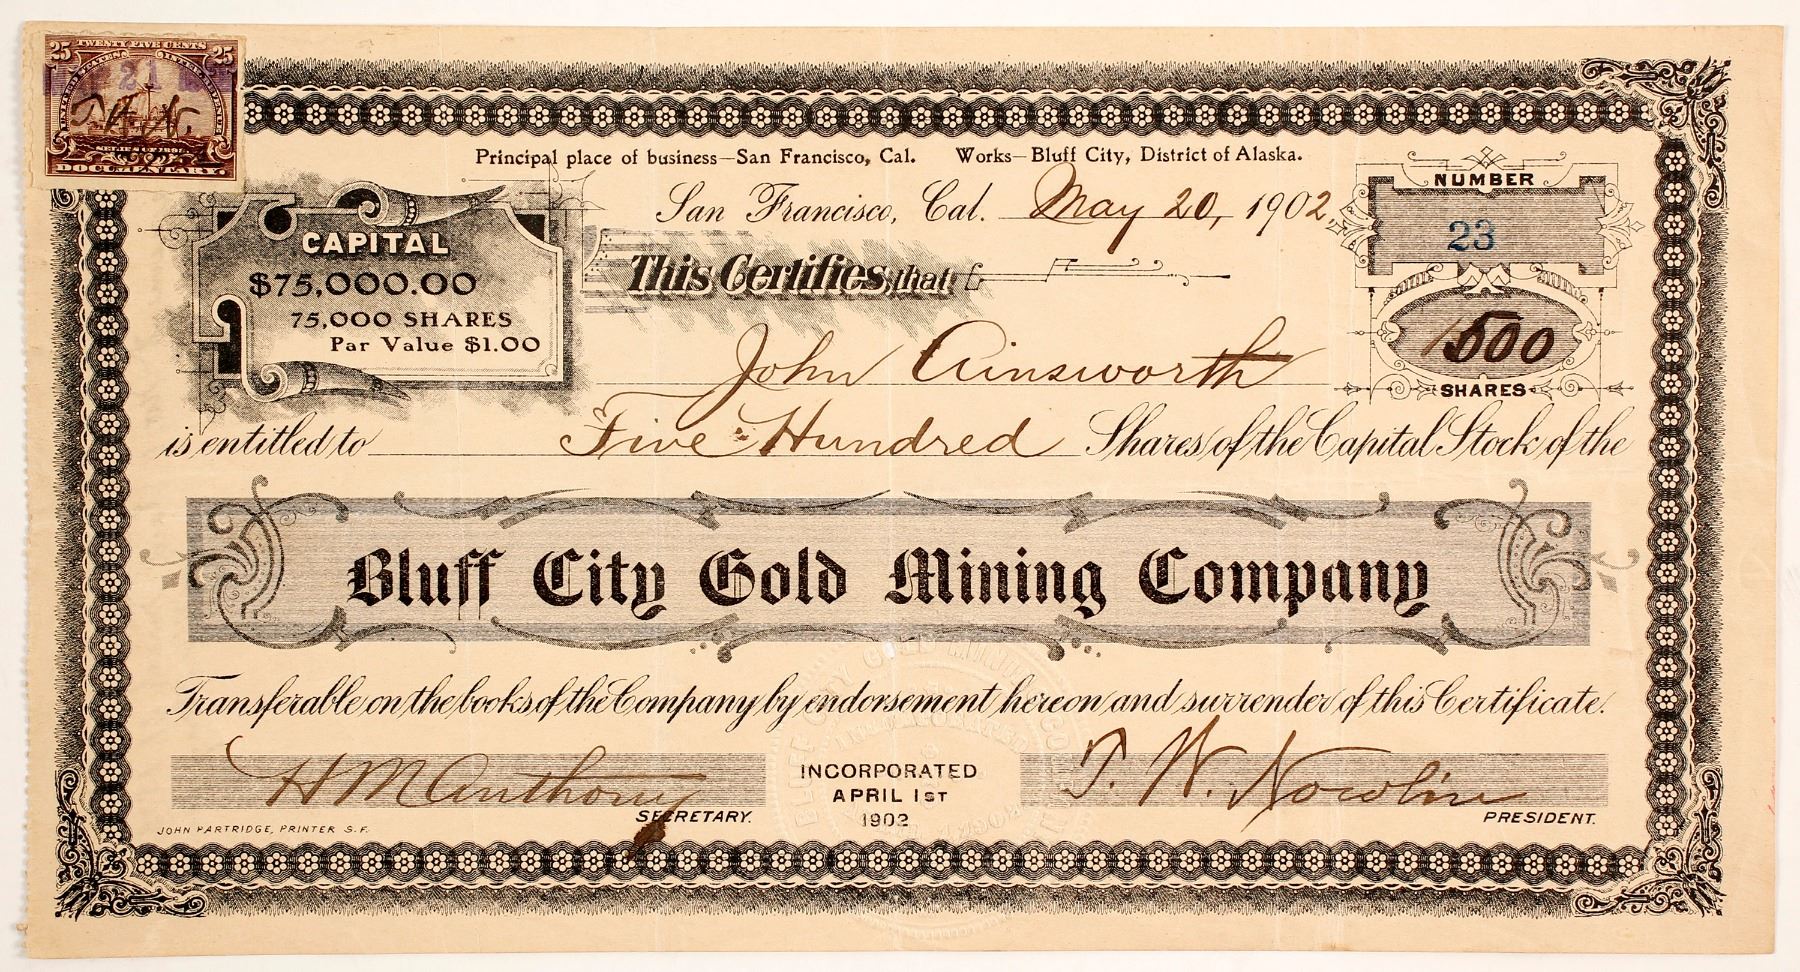 25 TWENTY FIVE CENTS 25
UNITED STATES INTER. REVENUE
21
T. W. N.
SERIES OF 1898
DOCUMENTARY.
Principal place of business—San Francisco, Cal. Works—Bluff City, District of Alaska.
San Francisco, Cal. May 20, 1902
NUMBER
23
CAPITAL
$75,000.00
75,000 SHARES
Par Value $1.00
This Certifies, that
John Ainsworth
500
SHARES
is entitled to Five Hundred Shares of the Capital Stock of the
Bluff City Gold Mining Company
Transferable on the books of the Company by endorsement hereon and surrender of this Certificate.
H M Anthony
SECRETARY.
INCORPORATED
APRIL 1ST
1902
T. W. Nowlin
PRESIDENT.
JOHN PARTRIDGE, PRINTER S.F.
BLUFF CITY GOLD MINING CO
INCORPORATED